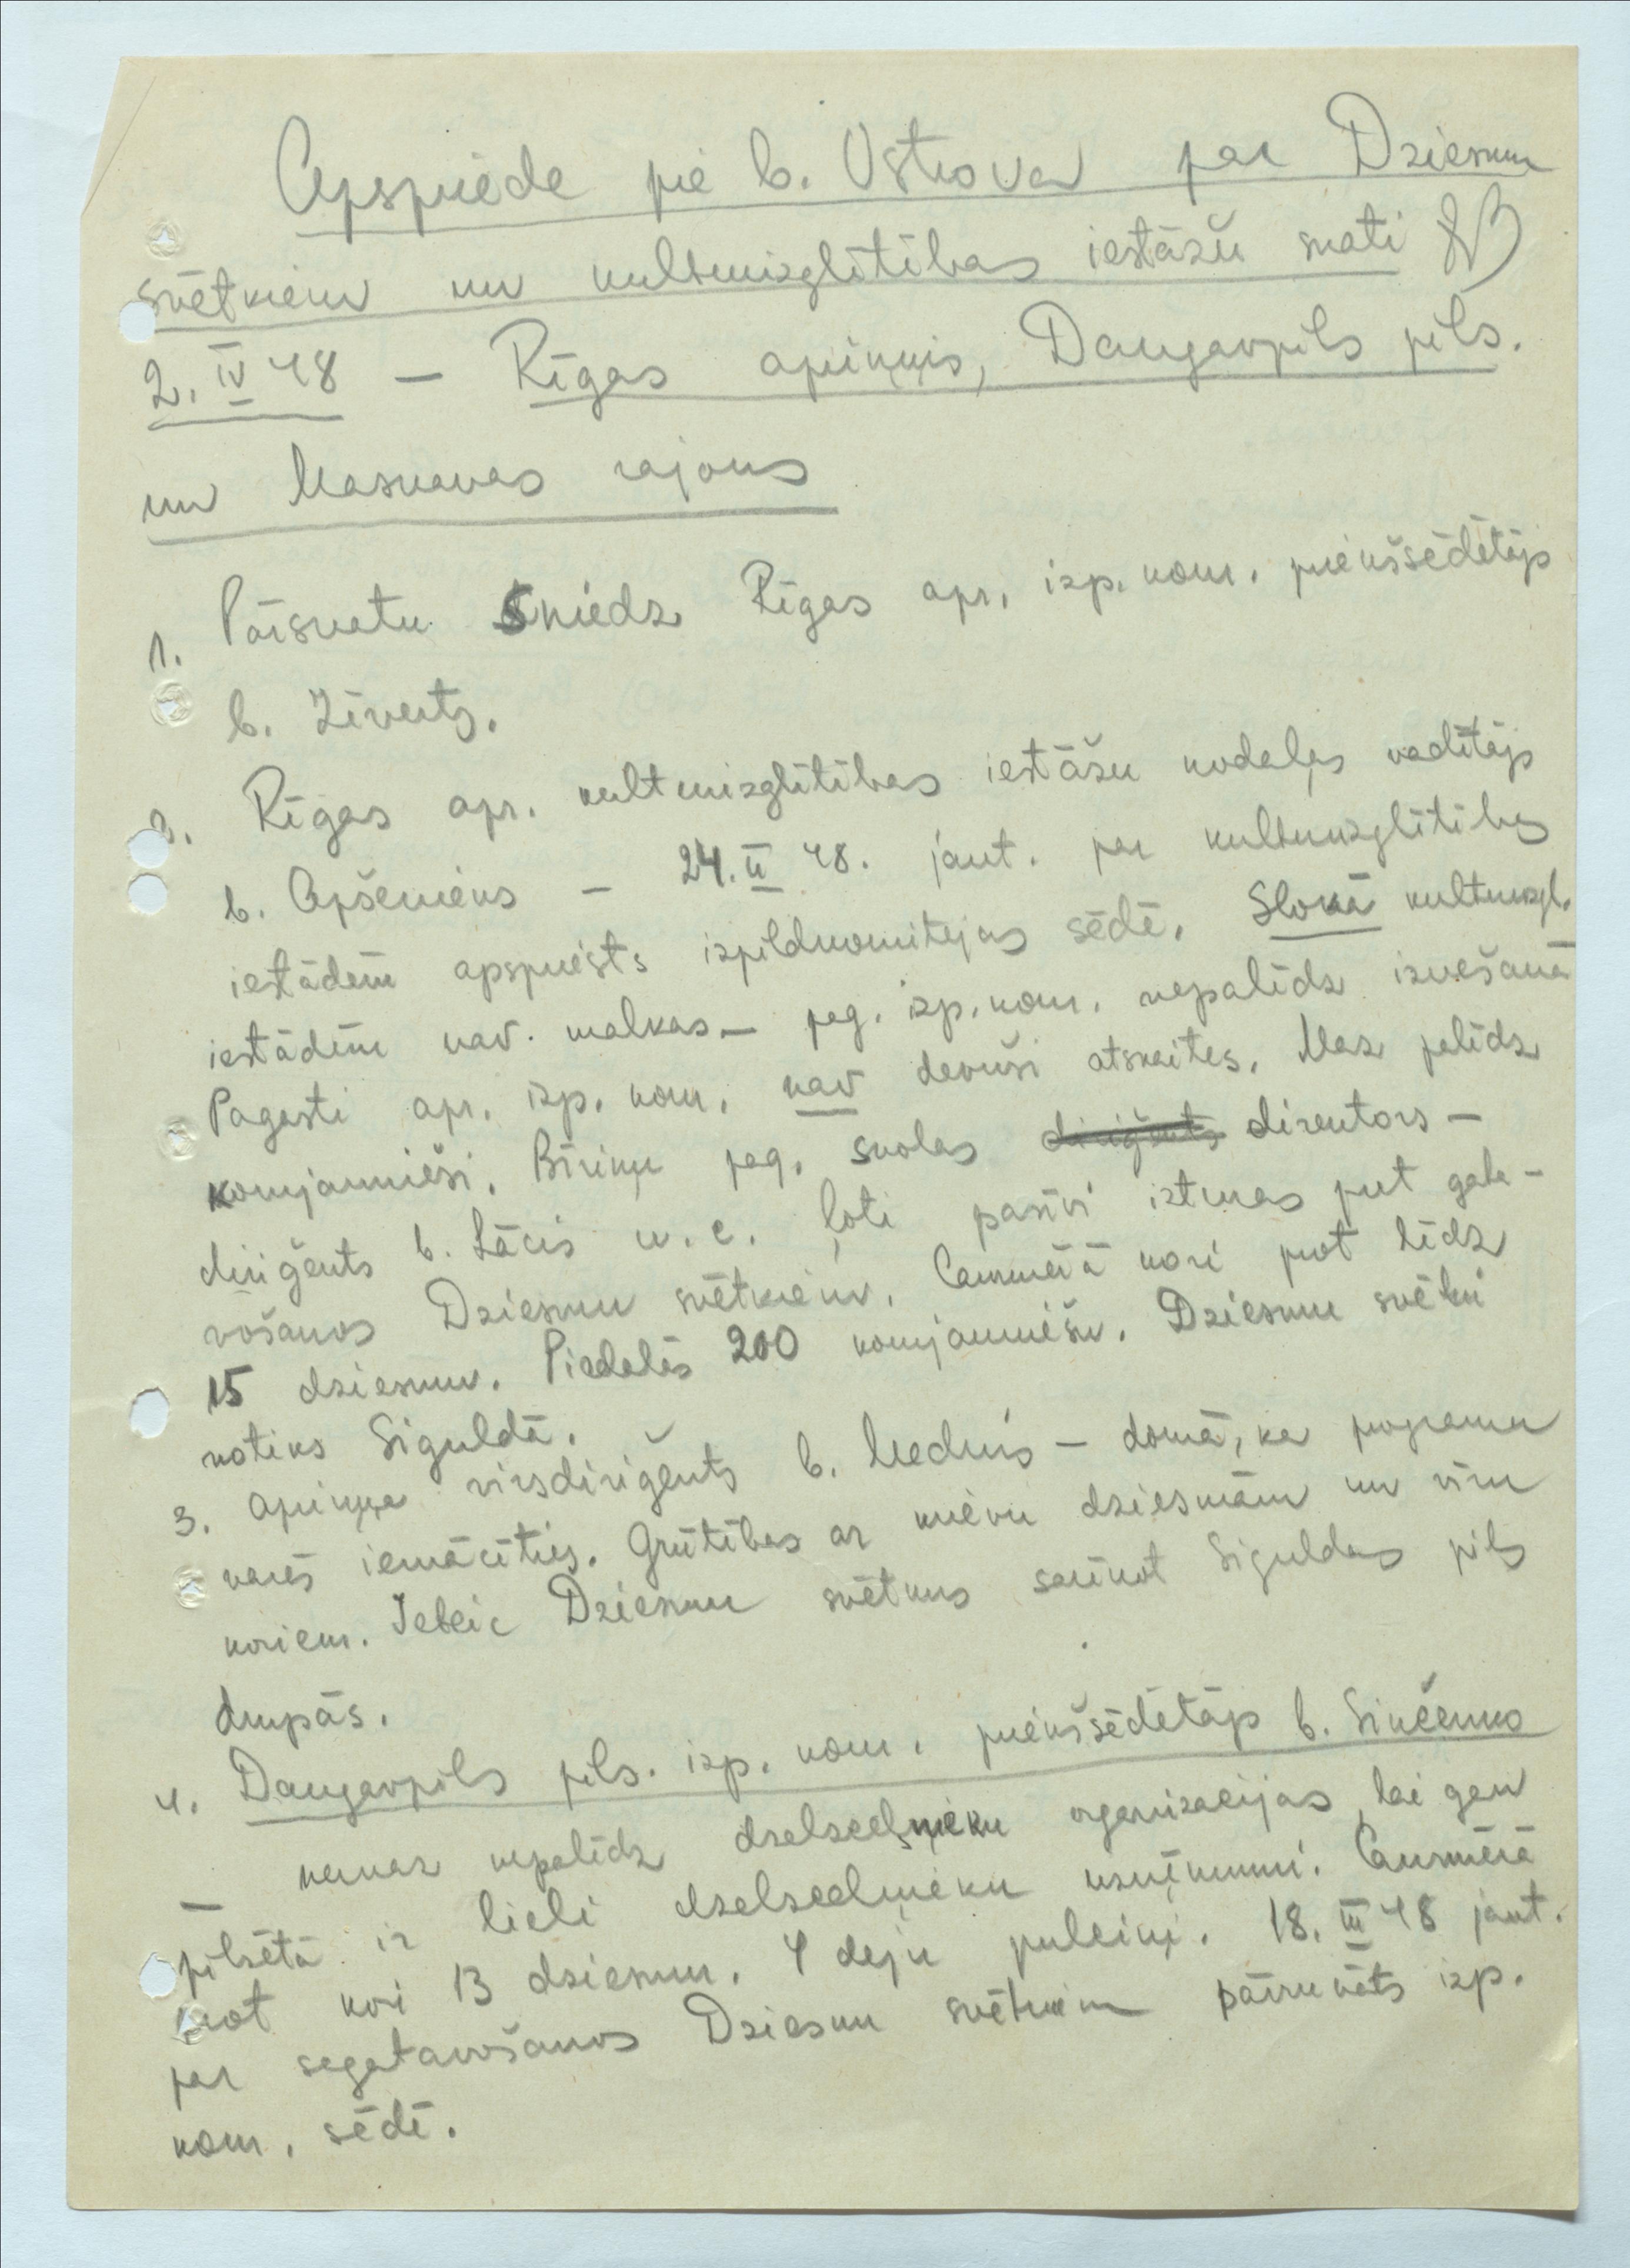 Apspriede pie b. Ostrova par Dziesmu
svētkiem un kultūrizglītības iestāžu skati
2. IV 48 – Rīgas apriņķis, Daugavpils pils.
un Maskavas rajons
1. Pārskatu sniedz Rīgas apr. izp. kom. priekšsēdētājs
b. Zīverts.
2. Rīgas apr. kultūrizglītības iestāžu nodaļas vadītājs
b. Apšenieks – 24. II 48. jaut. par kultūrizglītības
iestādēm apspriests izpildkomitejas sēdē. Slokā kultūrizgl.
iestādēm nav malkas – pag. izp. kom. nepalīdz izvešanā
Pagasti apr. izp. kom. nav devuši atskaites. Maz palīdz
komjaunieši. Bīriņu pag. skolas diriģents direktors –
diriģents b. Lācis u. c. ļoti pasīvi izturas pret gata-
vošanos Dziesmu svētkiem. Caurmērā kori prot līdz
15 dziesmu. Piedalās 200 komjauniešu. Dziesmu svētki
notiks Siguldā.
3. Apriņķa virsdiriģents b. Mednis – domā, ka programu
varēs iemācīties. Grūtības ar krievu dziesmām un vīru
koriem. Ieteic Dziesmu svētkus sarīkot Siguldas pils
drupās.
4. Daugavpils pils. izp. kom. priekšsēdētājs b. Sinčenko
– nemaz nepalīdz dzelzceļnieku organizacijas, lai gan
pilsētā ir lieli dzelzceļnieku uzņēmumi. Caurmērā
prot kori 13 dziesmu. 4 deju pulciņi. 18. III 48 jaut.
par sagatavošanos Dziesmu svētkiem pārrunāts izp.
kom. sēdē.